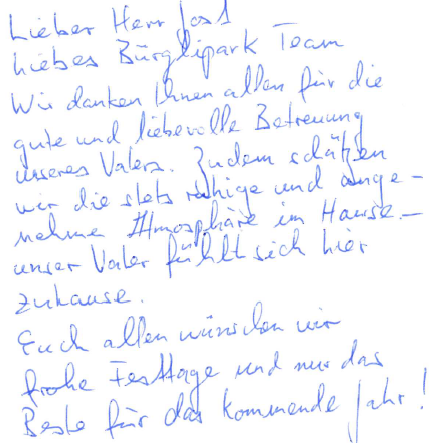 Lieber Herr Jost
Liebes Bürglipark Team
Wir danken Ihnen allen für die
gute und liebevolle Betreuung
unseres Vaters. Zudem schätzen
wir die stets ruhige und ange-
nehme Atmosphäre im Hause. –
unser Vater fühlt sich hier
zuhause.
Euch allen wünschen wir
frohe Festtage und nur das
Beste für das kommende Jahr!